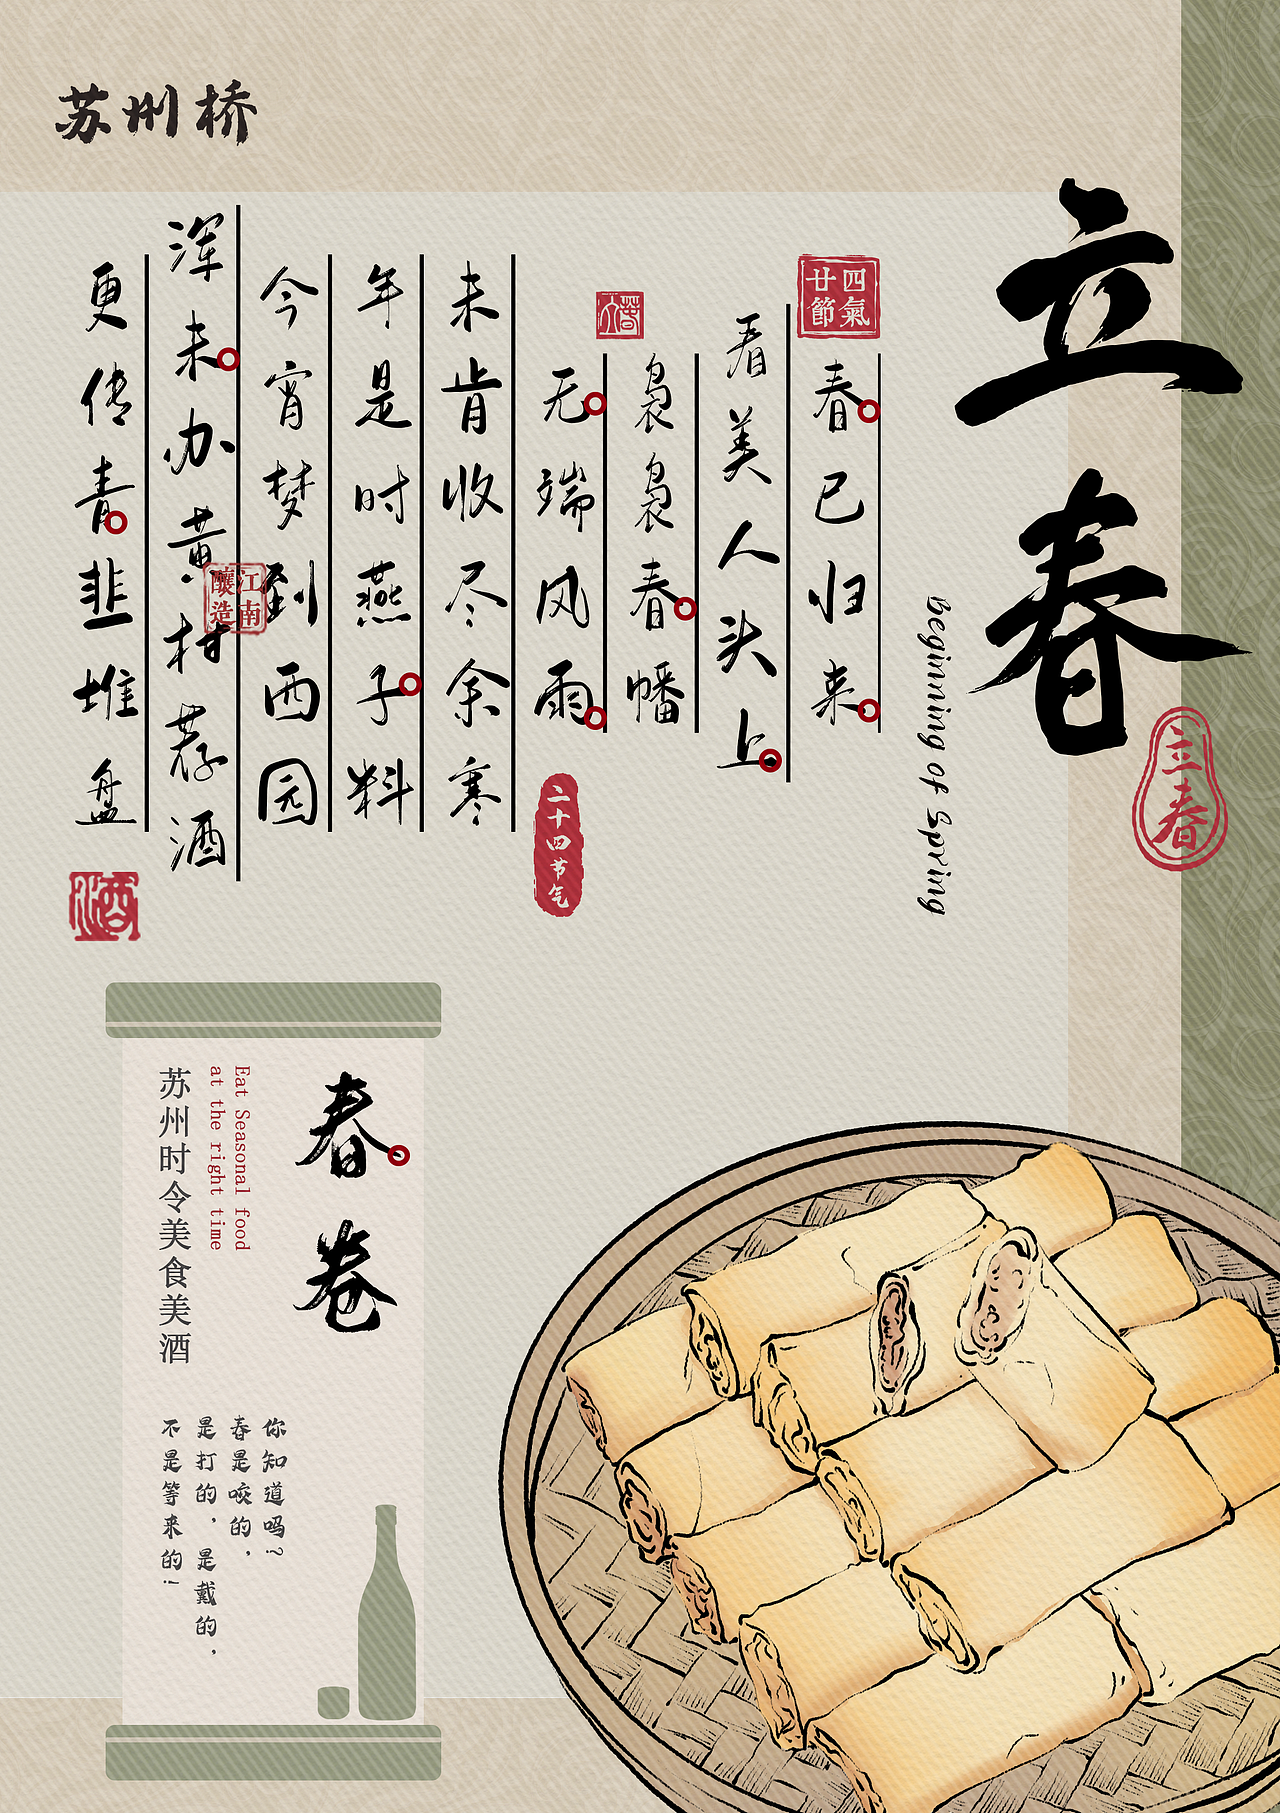 苏州桥
立春
Beginning of Spring
立春
四氣
廿節
春已归来
看美人头上
袅袅春幡
立春
无端风雨
未肯收尽余寒
二十四节气
年是时燕子料
今宵梦到西园
浑未办黄柑荐酒
江南
釀造
更传青韭堆盘
酒
春卷
Eat Seasonal food
at the right time
苏州时令美食美酒
你知道吗?
春是咬的,
是打的,是戴的,
不是等来的!